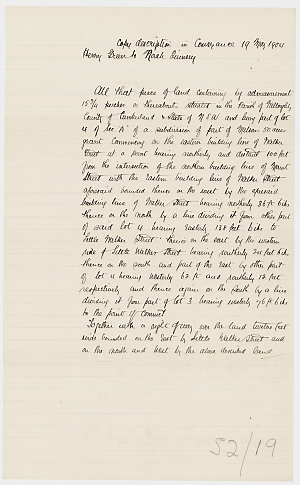 Copy description in Conveyance 19 Nov 1904
Henry Dunn to Norah
All that piece of land containing by admeasurement
15¾ perches or thereabouts situated in the Parish of Willoughby
County of Cumberland & State of N S W and being part of lot
of Sec 'A' of a subdivision of part of Milson 50 acre
grant Commencing on the eastern building line of Walker
Street at a point bearing northerly and distant 100 feet
from the intersection of the northern building line of
Street with the Eastern building line of Walker Street
aforesaid bounded thence on the west by the aforesaid
building line of Walker Street bearing northerly 36 ft 6 ins
thence on the north by a line dividing it from other part
of said lot 4 bearing easterly 138 feet 6 ins to
Little Walker Street thence on the east by the western
side of Little Walker Street bearing southerly feet 6 ins
thence on the south and part of the east by other part
of lot 4 bearing westerly 62 ft and southerly 12 feet
respectively and thence again on the South by a line
dividing it from part of lot 3 bearing westerly 76 ft 6 ins
to the point of commet
Together with a right of way over the land twelve feet
wide bounded on the East by Little Walker Street and
on the north and West by the above described land
52/19